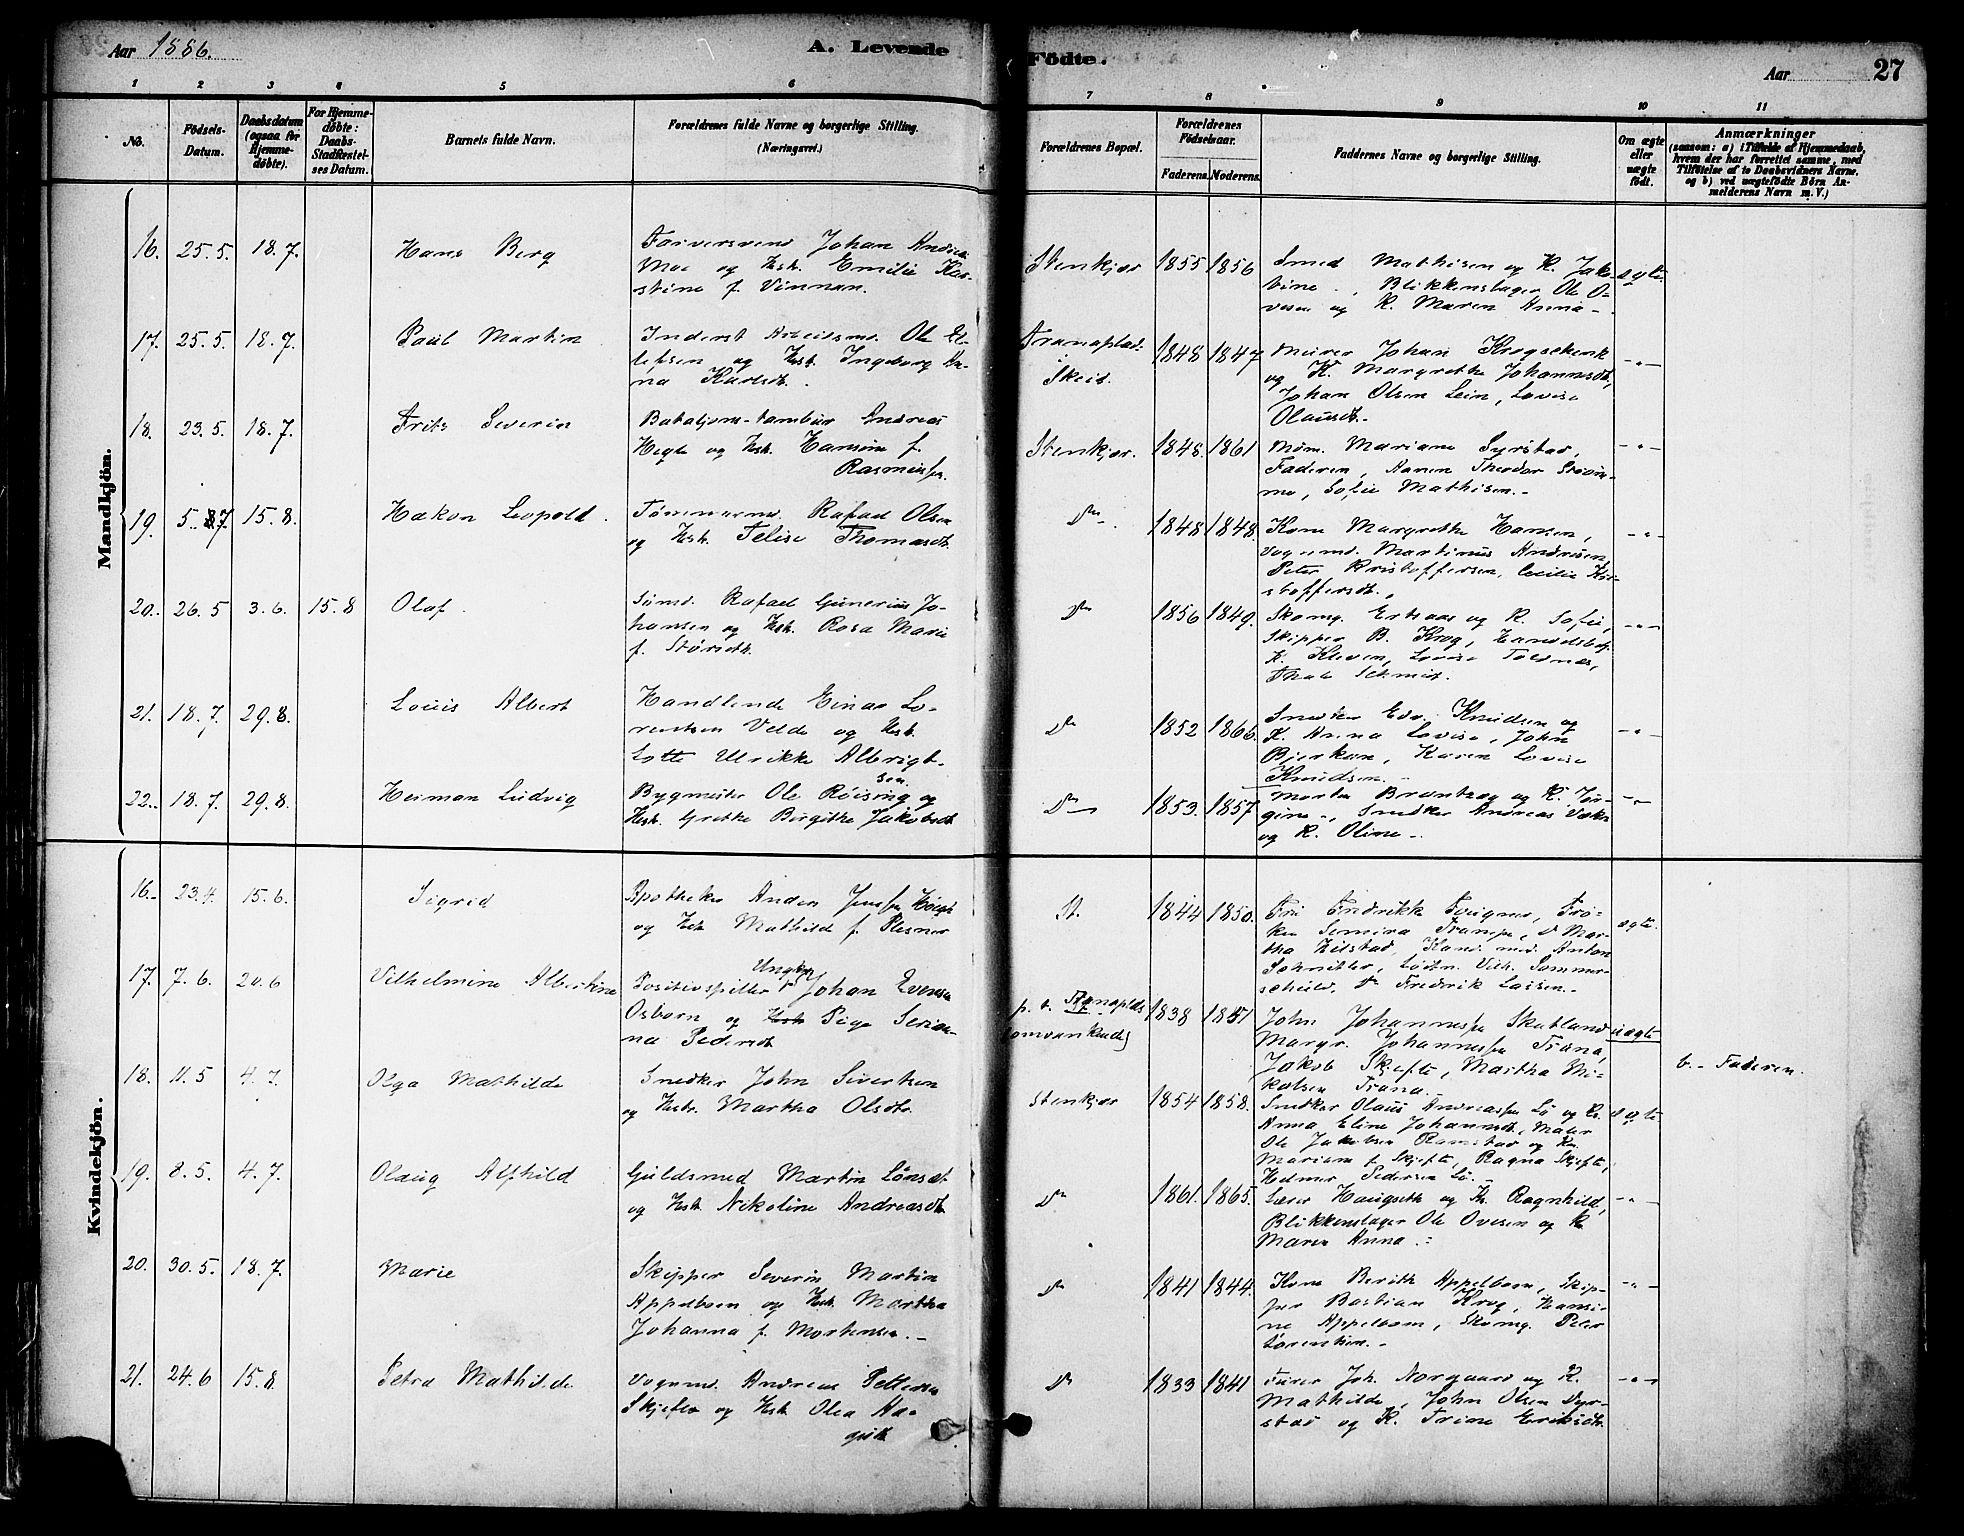 Aar 1886.
A. Levende
Födte.
Aar
27
1 2 3 4 5 6
7 8 9 10 11
No.
Födsels-
Datum.
Daabsdatum
(ogsaa for
Hjemme-
döbte).
For Hjemme-
døbte:
Daabs-
Stadfæstel-
ses Datum.
Barnets fulde Navn.
Forældrenes fulde Navne og borgerlige Stilling.
(Næringsvei.)
Forældrenes Bopæl.
Forældrenes
Födselsaar.
Faderens. Moderens.
Faddernes Navne og borgerlige Stilling.
Om ægte
eller
uægte
født.
Anmærkninger
(saasom: a) i Tilfælde af Hjemmedaab,
hvem der har forrettet samme, med
Tilføielse af to Daabsvidners Navne.
og b) ved uægtefödte Börn An-
melderens Navn m. V.)
Mandkjön.
16. 25.5. 18.7. Hans Berg
Farversvend Johan Andreas
Moe og Hst. Emilie Kar-
stine f. Vinnan.
Stenkjær 1855 1856
Smed Mathisen og K. Jako-
bine, Blikkenslager Ole O-
vesen og K. Maren Anna -.
ægte
17. 25.5. 18.7. Paul Martin
Inderst Arbeidsmd. Ole El-
lefsen og Hst. Ingeborg An-
na Karlsdt.
Skeid. 1848 1847
Murer Johan Krogschenk
og K. Margrethe Johannesdt,
Johan Olsen Lein, Lovise
Olausdt.
-"-
18. 23.5. 18.7. Frits Severin
Bataljons-tambur Andreas
Hegle og Hst. Hansine f.
Rasmussen.
Stenkjær. 1848. 1861
Mdm. Mariane Syrstad,
Faderen, Aanen Theodor
Sofie Mathisen.-
-"-
19. 5.7 15.8. Hakon Leopold.
Tømmermd. Rafael Olsen
og Hst. Felise Thomasdt.
Do. 1848 1848.
Kone Margrethe Hansen,
Vognmd. Martinus Andresen,
Peter Kristoffersen, Cecilie Kri-
stoffersdt.
-"-
20. 26.5 3.6. 15.8 Olaf.
Sømd. Rafael Gunerius Jo-
hansen og Hst. Rosa Marie
f. Størseth.
Do 1856 1849.
Skomg. Ertsaas og K. Sofie,
Skipper B. Krog, Handelsbetj.
K. Kleven, Lovise Toldnæs,
Thale Schmid.
-"-
21. 18.7. 29.8. Louis Albert
Handlende Einar Lo-
rentsen Velde og Hst.
Lotte Ulrikke Albrigt-
sen.
Do 1852 1866.
Snedker Edv. Knudsen og
K. Anna Lovise, John
Bjerkan, Karen Lovise
Knudsen.-
-"-
22. 18.7. 29.8. Herman Ludvig
Bygmester Ole Røising og
Hst. Grethe Birgithe Jakobsdt
Do 1853. 1857
Morten Brandtzæg og K. Jør-
gine -, Snedker Andreas
og K. Oline -.
-"-
Kvindekjön.
16. 23.4. 15.6. Sigrid
Apotheker Anders Jenssen Høigh
og Hst. Mathilde f. Plesner
St. 1844 1850.
Fru Fredrikke Frø-
ken Semira
tha Hilstad, Kand. med. Anton
Schnitler, Løitn. Vilh. Sommer-
schield, Do Fredrik Lassen.-
ægte.
17. 7.6. 20.6 Vilhelmine Albertine
Ungkar
Positivspiller Johan Evensen
Osborn og Hst. Pige Serian-
na Pedersdt
(omvankende) 1838 1851
John Johannessen Skatland
Margr. Johannessen Trana,
Jakob Skjefte, Martha Mi-
kalsen Trana.
uægte
b. - Faderen.
18. 11.5 4.7. Olga Mathilde
Snedker John Sivertsen
og Hst. Martha Olsdt.
Stenkjær 1854 1858.
Snedker Olaus Andreassen Lø og K.
Anna Eline Johannesdt, Maler
Ole Jakobsen Ramstad og K.
Mariam f. Skjefte, Ragna Skjefte,
Helmer Pedersen Lø.-
ægte
19. 8.5. 4.7. Olaug Alfhild
Guldsmed Martin Lønset
og Hst. Nikoline Andreasdt.
Do 1861. 1865.
Lærer Haugseth og K. Ragnhild,
Blikkenslager Ole Ovesen og K
Maren Anna.
-"-
20. 30.5. 18.7. Marie
Skipper Severin Martin
Appelbom og Hst. Martha
Johanna f. Mortensen.-
Do 1841 1844.
Kone Berith Appelbom, Skip-
per Bastian Krog, Hansi-
ne Appelbom, Skomg. Peter
Lorentsen.-
-"-
21. 24.6 15.8. Petra Mathilde
Vognmd. Andreas Pettersen
Skjefte og Hst. Olea Aa-
gesdt
Do 1833 1841
Furer Joh. Norgaard og K.
Mathilde, John Olsen Dyr-
stad og K. Trine Eriksdt.
-"-